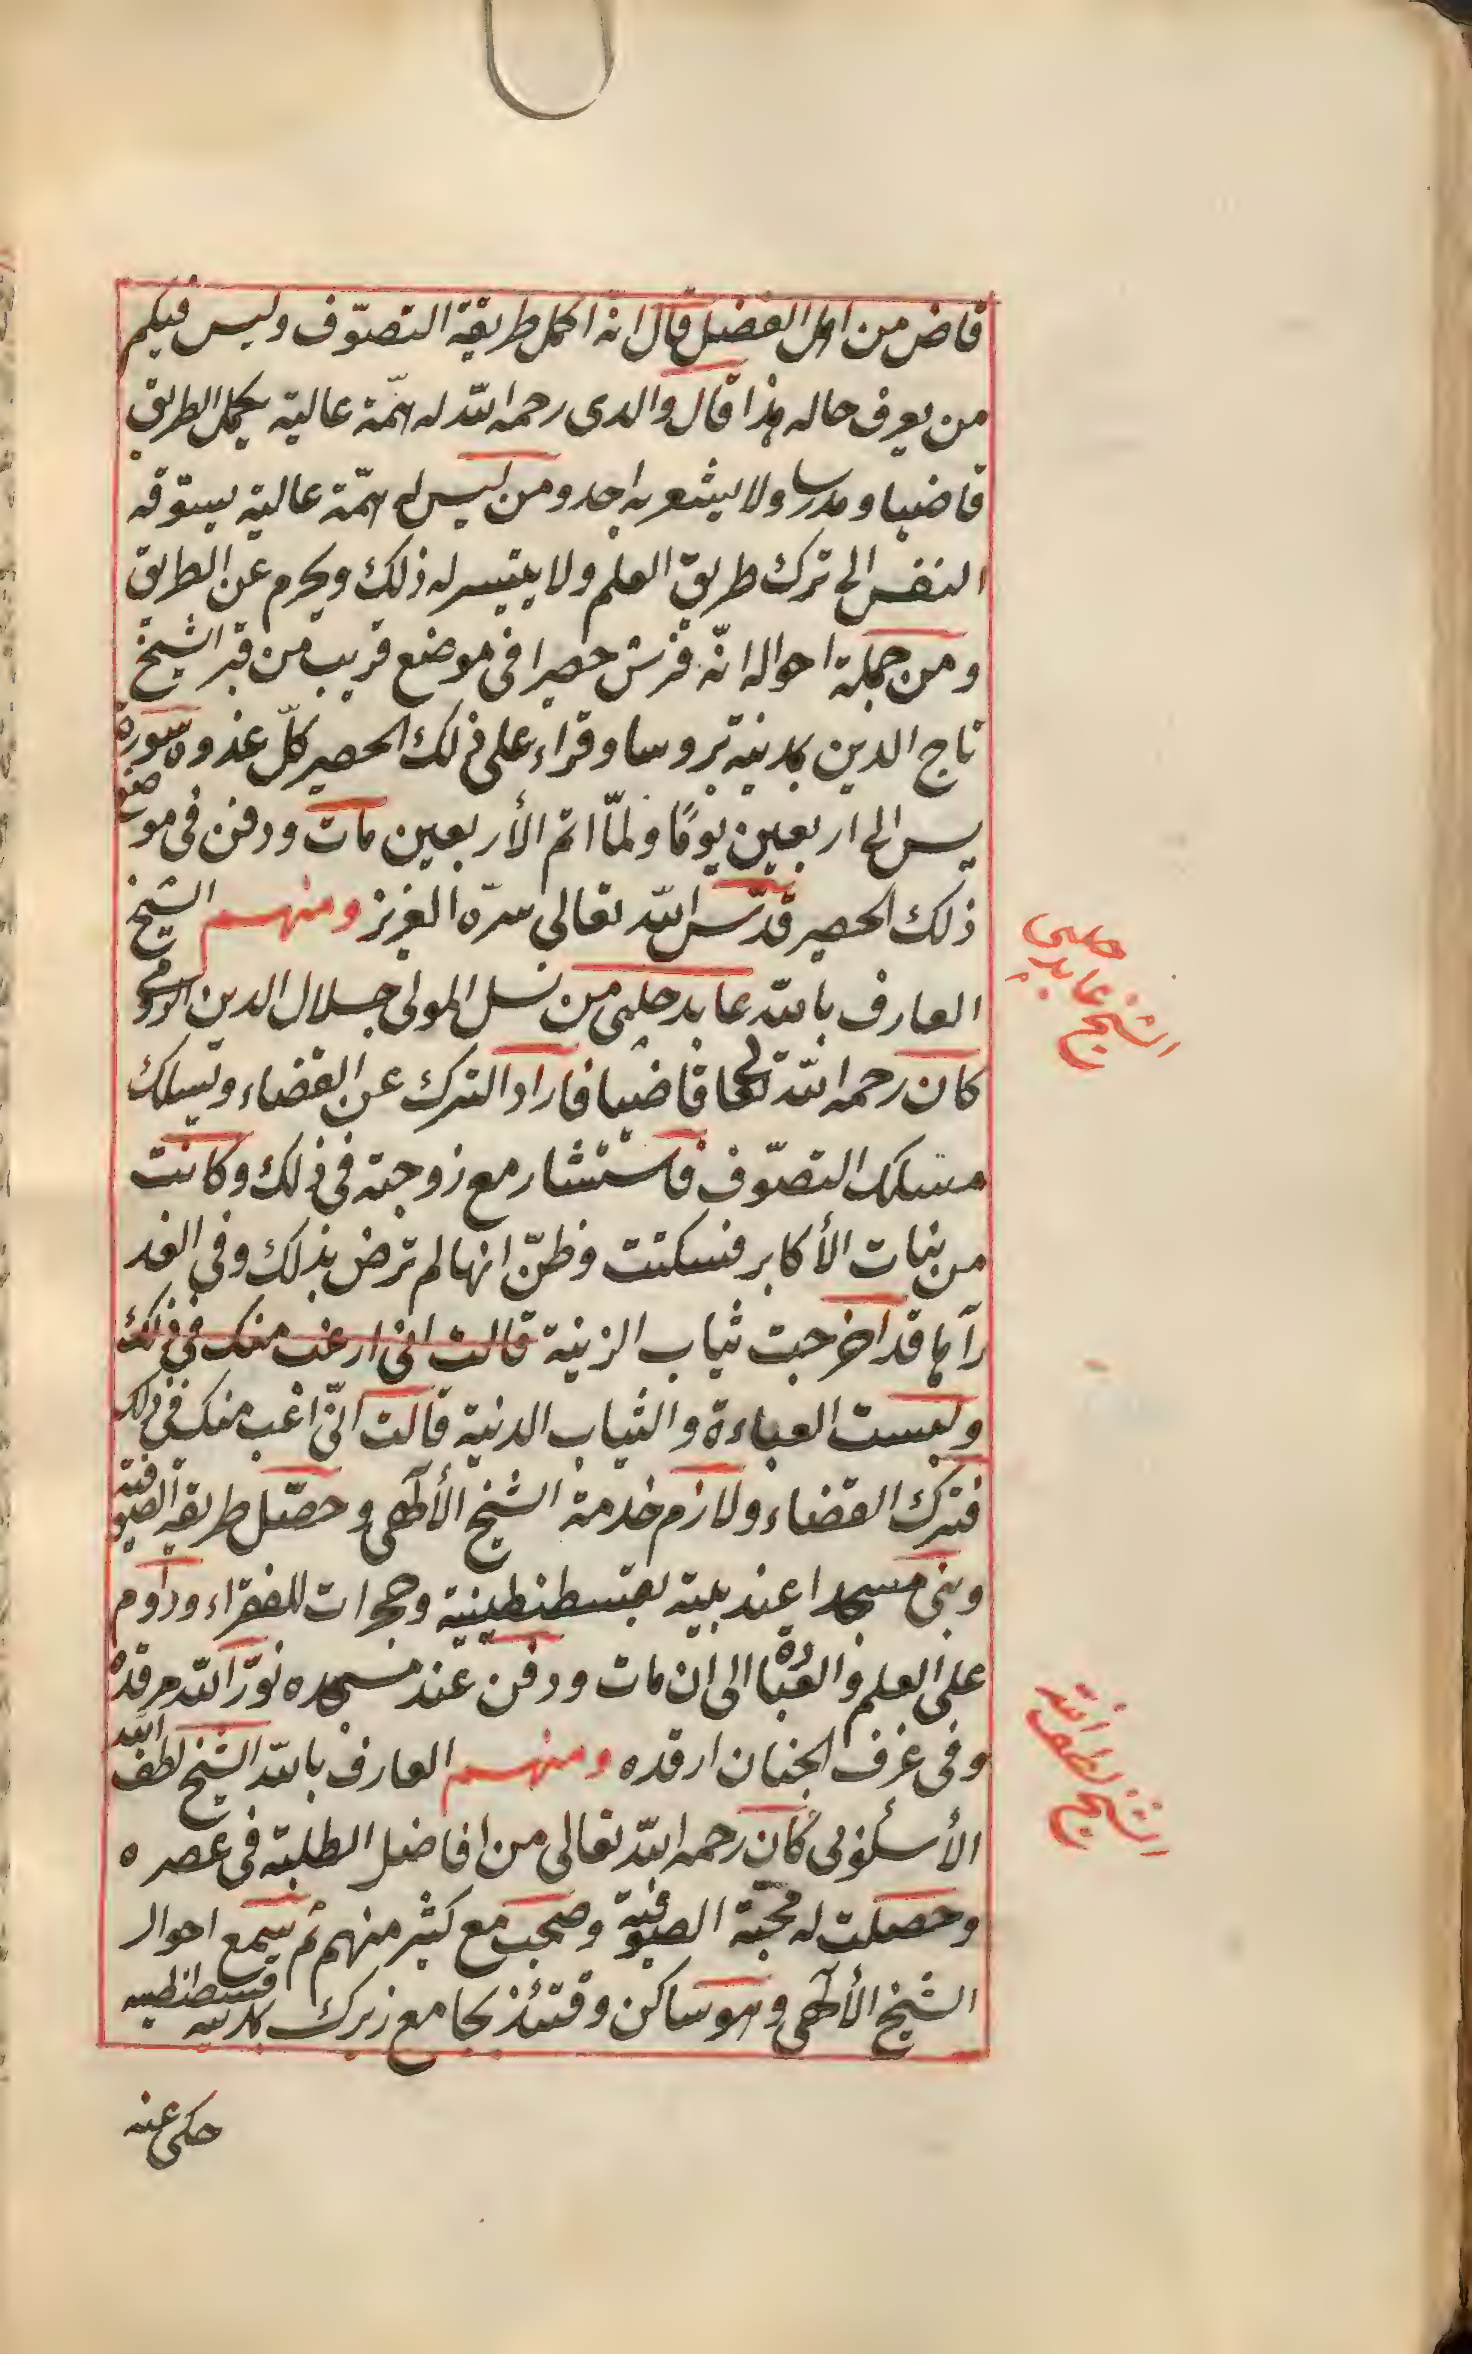 قاض من اهل الفضل قال انه اكمل طريقة التصوّف وليس فيكم
من يعرف حاله هذا قال والدى رحمه الله له همّة عالية يكمل الطريق
قاضيا ومدرسا ولا يشعر به احد ومن ليس له همّة عالية يسوقه
النفس الى ترك طريق العلم ولا يتيسر له ذلك ويحرم عن الطريق
ومن جملة احواله انّه فرش حصيرا فى موضع قريب من قبر الشيخ
تاج الدين بمدينة بروسا وقراء على ذلك الحصير كلّ غدوة سورة
يس الى اربعين يومًا ولمّا اتم الأربعين مات ودفن فى موضع
ذلك الحصير قدّس الله تعالى سرّه العزيز ومنهم الشيخ
العارف بالله عابد چلبى من نسل المولى جلال الدين الرومى
كان رحمه الله تعالى قاضيا فاراد الترك عن القضاء وتسلك
مسلك التصوّف فاستشار مع زوجته فى ذلك وكانت
من بنات الأكابر فسكتت وظنّ انها لم ترض بذلك وفى الغد
رآها قد اخرجت ثياب الزينة قالت انى ارغب منك فى ذلك
ولبست العباءة والثياب الدنية قالت انّى ارغب منك فى ذلك
فترك القضاء ولازم خدمة الشيخ الألهى وحصّل طريقة الصوفية
وبنى مسجدا عند بيته بقسطنطينية وحجرات للفقراء وداوم
على العلم والعبادة الى ان مات ودفن عند مسجده نوّر الله مرقده
وفى غرف الجنان ارقده ومنهم العارف بالله الشيخ لطف الله
الأسكوبى كان رحمه الله تعالى من افاضل الطلبة فى عصره
وحصلت له محبّة الصوفية وصحب مع كثير منهم ثم سمع احوال
الشيخ الألهى وهو ساكن وقتئذ بجامع زيرك بمدينة قسطنطينية
حكى عنه
الشيخ عابد چلبى
الشيخ لطف الله